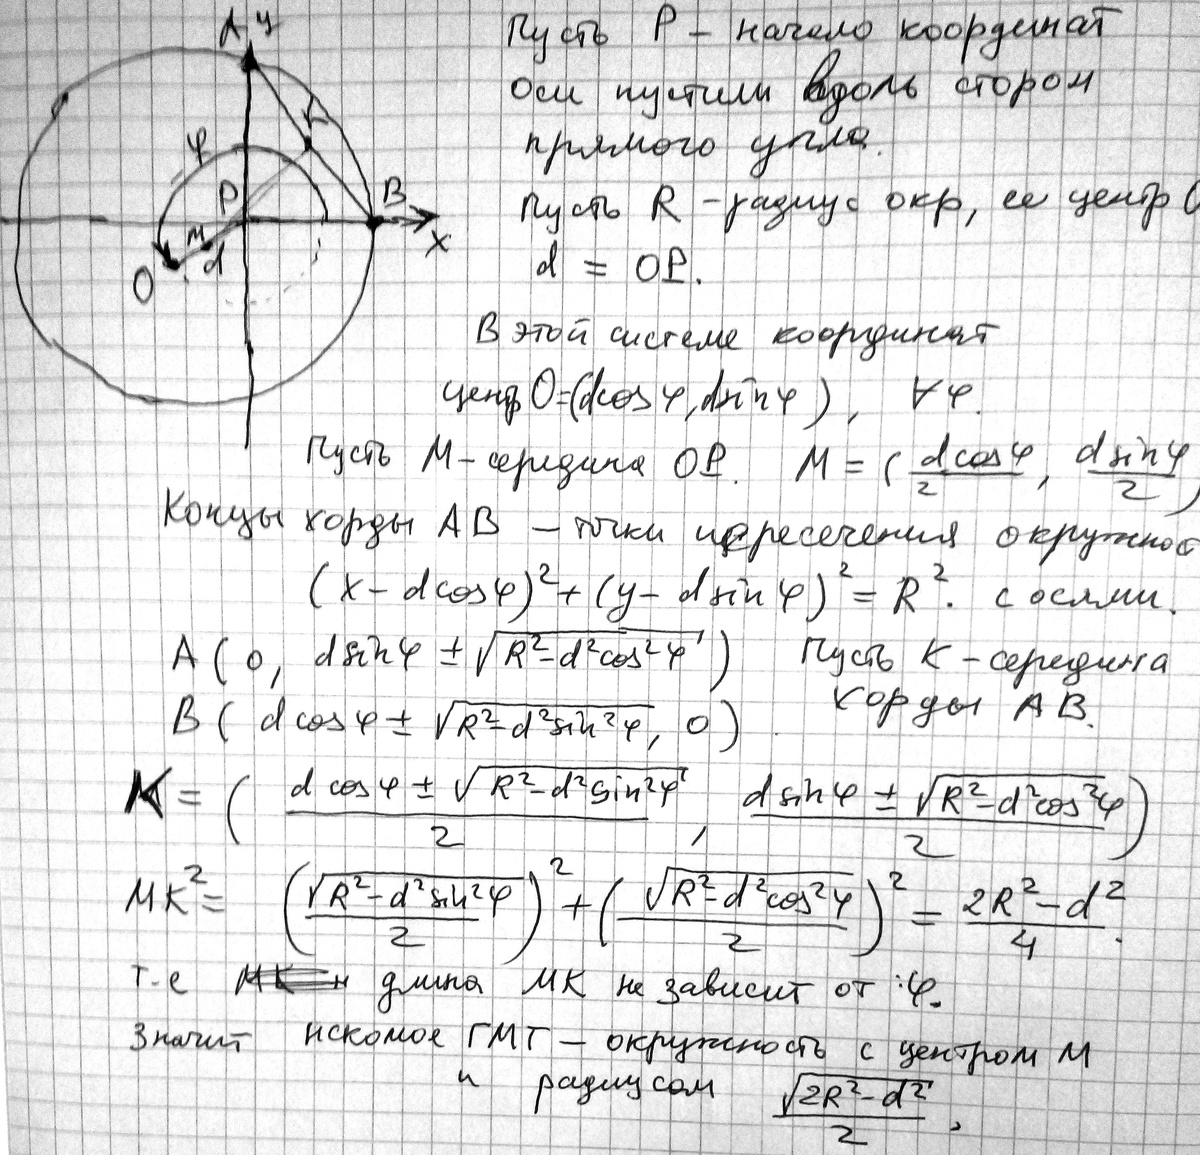 A y
K
φ
P
B
M
d
x
O
Пусть P – начало координат
оси пустили вдоль сторон
прямого угла.
Пусть R – радиус окр, ее центр O
d = OP.
В этой системе координат
центр O=(dcosφ, dsinφ), ∀φ.
Пусть M – середина OP. M = (dcosφ/2, dsinφ/2)
Концы хорды AB – точки пересечения окружнос
(x – dcosφ)² + (y – dsinφ)² = R². с осями.
A(0, dsinφ ± √(R²–d²cos²φ)) Пусть K – середина
хорды AB.
B(dcosφ ± √(R²–d²sin²φ), 0).
K = ((dcosφ ± √(R²–d²sin²φ))/2, (dsinφ ± √(R²–d²cos²φ))/2)
MK² = (√(R²–d²sin²φ)/2)² + (√(R²–d²cos²φ)/2)² = (2R²–d²)/4.
т.е длина MK не зависит от φ.
Значит искомое ГМТ – окружность с центром M
и радиусом √(2R²–d²)/2,